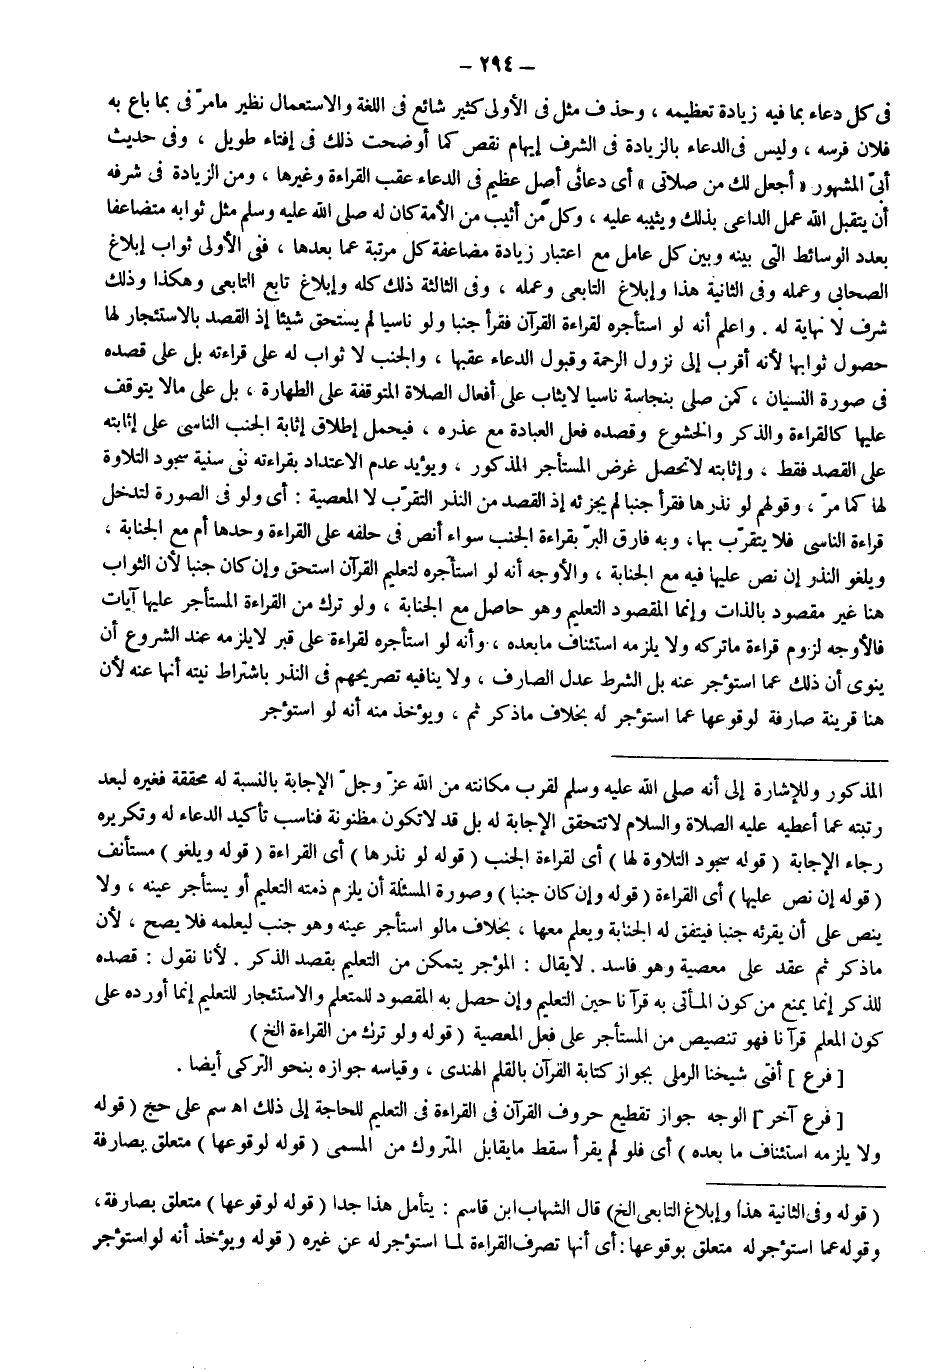 – ٢٩٤ –
فى كل دعاء بما فيه زيادة تعظيمه ، وحذف مثل فى الأولى كثير شائع فى اللغة والاستعمال نظير مامرّ فى بما باع به
فلان فرسه ، وليس فى الدعاء بالزيادة فى الشرف إيهام نقص كما أوضحت ذلك فى إفتاء طويل ، وفى حديث
أبىّ المشهور « أجعل لك من صلاتى » أى دعائى أصل عظيم فى الدعاء عقب القراءة وغيرها ، ومن الزيادة فى شرفه
أن يتقبل الله عمل الداعى بذلك ويثيبه عليه ، وكل من أثيب من الأمة كان له صلى الله عليه وسلم مثل ثوابه متضاعفا
بعدد الوسائط التى بينه وبين كل عامل مع اعتبار زيادة مضاعفة كل مرتبة عما بعدها ، ففى الأولى ثواب إبلاغ
الصحابى وعمله وفى الثانية هذا وإبلاغ التابعى وعمله ، وفى الثالثة ذلك كله وإبلاغ تابع التابعى وهكذا وذلك
شرف لا نهاية له . واعلم أنه لو استأجره لقراءة القرآن فقرأ جنبا ولو ناسيا لم يستحق شيئا إذ القصد بالاستئجار لها
حصول ثوابها لأنه أقرب إلى نزول الرحمة وقبول الدعاء عقبها ، والجنب لا ثواب له على قراءته بل على قصده
فى صورة النسيان ، كمن صلى بنجاسة ناسيا لايثاب على أفعال الصلاة المتوقفة على الطهارة ، بل على مالا يتوقف
عليها كالقراءة والذكر والخشوع وقصده فعل العبادة مع عذره ، فيحمل إطلاق إثابة الجنب الناسى على إثابته
على القصد فقط ، وإثابته لاتحصل غرض المستأجر المذكور ، ويؤيد عدم الاعتداد بقراءته نفى سنية سجود التلاوة
لها كما مرّ ، وقولهم لو نذرها فقرأ جنبا لم يجزئه إذ القصد من النذر التقرّب لا المعصية : أى ولو فى الصورة لتدخل
قراءة الناسى فلا يتقرّب بها، وبه فارق البرّ بقراءة الجنب سواء أنص فى حلفه على القراءة وحدها أم مع الجنابة ،
ويلغو النذر إن نص عليها فيه مع الجنابة ، والأوجه أنه لو استأجره لتعليم القرآن استحق وإن كان جنبا لأن الثواب
هنا غير مقصود بالذات وإنما المقصود التعليم وهو حاصل مع الجنابة ، ولو ترك من القراءة المستأجر عليها آيات
فالأوجه لزوم قراءة ماتركه ولا يلزمه استئناف مابعده ، وأنه لو استأجره لقراءة على قبر لايلزمه عند الشروع أن
ينوى أن ذلك عما استؤجر عنه بل الشرط عدل الصارف ، ولا ينافيه تصريحهم فى النذر باشتراط نيته أنها عنه لأن
هنا قرينة صارفة لوقوعها عما استؤجر له بخلاف ماذكر ثم ، ويؤخذ منه أنه لو استؤجر
المذكور وللإشارة إلى أنه صلى الله عليه وسلم لقرب مكانته من الله عزّ وجلّ الإجابة بالنسبة له محققة فغيره لبعد
رتبته عما أعطيه عليه الصلاة والسلام لاتتحقق الإجابة له بل قد لاتكون مظنونة فناسب تأكيد الدعاء له وتكريره
رجاء الإجابة ( قوله سجود التلاوة لها ) أى لقراءة الجنب ( قوله لو نذرها ) أى القراءة ( قوله ويلغو ) مستأنف
( قوله إن نص عليها ) أى القراءة ( قوله وإن كان جنبا ) وصورة المسئلة أن يلزم ذمته التعليم أو يستأجر عينه ، ولا
ينص على أن يقرئه جنبا فيتفق له الجنابة ويعلم معها ، بخلاف مالو استأجر عينه وهو جنب ليعلمه فلا يصح ، لأن
ماذكر ثم عقد على معصية وهو فاسد . لايقال : المؤجر يتمكن من التعليم بقصد الذكر . لأنا نقول : قصده
للذكر إنما يمنع من كون المأتى به قرآنا حين التعليم وإن حصل به المقصود للمتعلم والاستئجار للتعليم إنما أورده على
كون المعلم قرآنا فهو تنصيص من المستأجر على فعل المعصية ( قوله ولو ترك من القراءة الخ )
[ فرع ] أفتى شيخنا الرملى بجواز كتابة القرآن بالقلم الهندى ، وقياسه جوازه بنحو التركى أيضا .
[ فرع آخر ] الوجه جواز تقطيع حروف القرآن فى القراءة فى التعليم للحاجة إلى ذلك اه سم على حج ( قوله
ولا يلزمه استئناف ما بعده ) أى فلو لم يقرأ سقط مايقابل المتروك من المسمى ( قوله لوقوعها ) متعلق بصارفة
( قوله وفى الثانية هذا وإبلاغ التابعى الخ) قال الشهاب ابن قاسم : يتأمل هذا جدا ( قوله لوقوعها ) متعلق بصارفة،
وقوله عما استؤجر له متعلق بوقوعها : أى أنها تصرف القراءة لما استؤجر له عن غيره ( قوله ويؤخذ أنه لو استؤجر